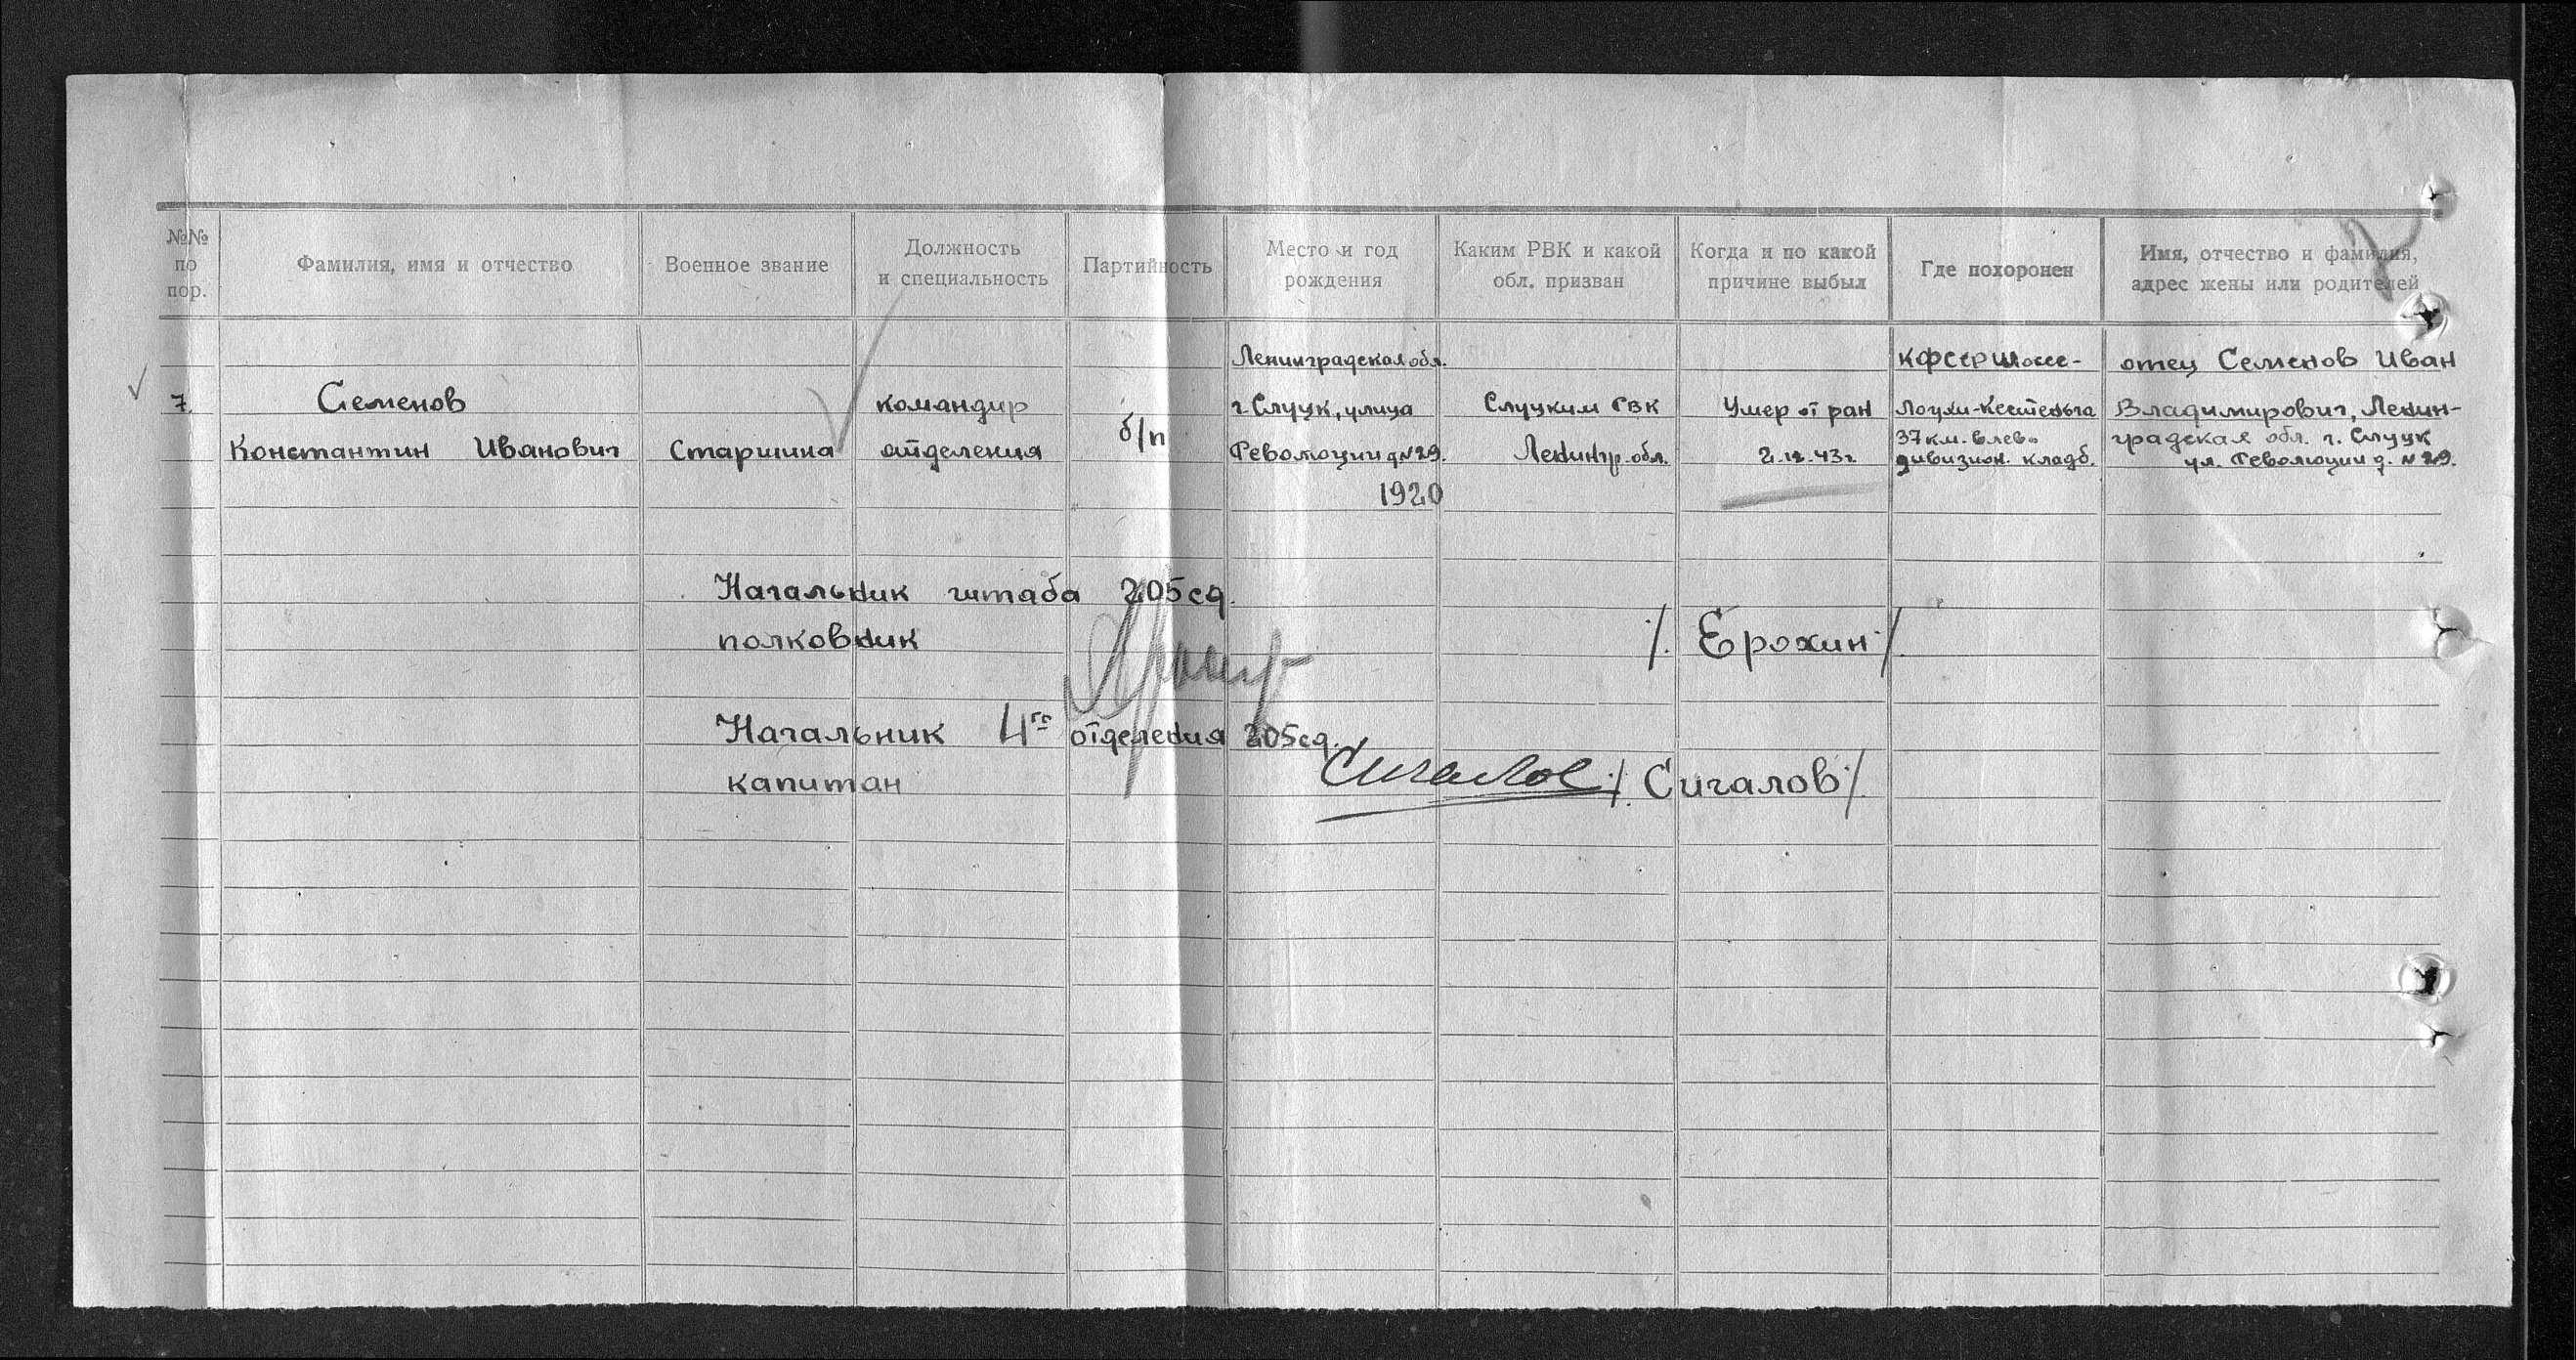 №№ по пор.
Фамилия, имя и отчество
Военное звание
Должность и специальность
Партийность
Место и год рождения
Каким РВК и какой обл. призван
Когда и по какой причине выбыл
Где похоронен
Имя, отчество и фамилия, адрес жены или родителей
7.
Семенов
Константин Иванович
Старшина
командир
отделения
б/п
Ленинградская обл.
г. Слуцк, улица
Революции д № 29.
1920
Слуцким РВК
Ленингр. обл.
Умер от ран
2.12.43 г.
КФССР шоссе-
Лоухи-Кестеньга
37 км. влево
дивизион. кладб.
отец Семенов Иван
Владимирович, Ленин-
градская обл. г. Слуцк
ул. Революции д. № 29.
Начальник штаба 205 сд.
полковник /. Ерохин ./
Начальник 4го отделения 205 сд.
капитан Сигалов /. Сигалов ./